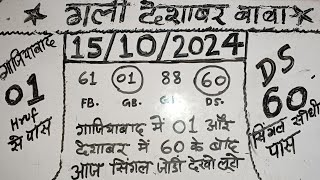 गली देशाबर बाबा
15/10/2024
गाजियाबाद
01
Hruf
से पास
61 01 88 60
FB. GB. G1. DS.
DS
60
सिंगल सीधी
पास
गाजियाबाद में 01 और
देसाबर में 60 के बाद
आज सिंगल जोडी देखो लूटो